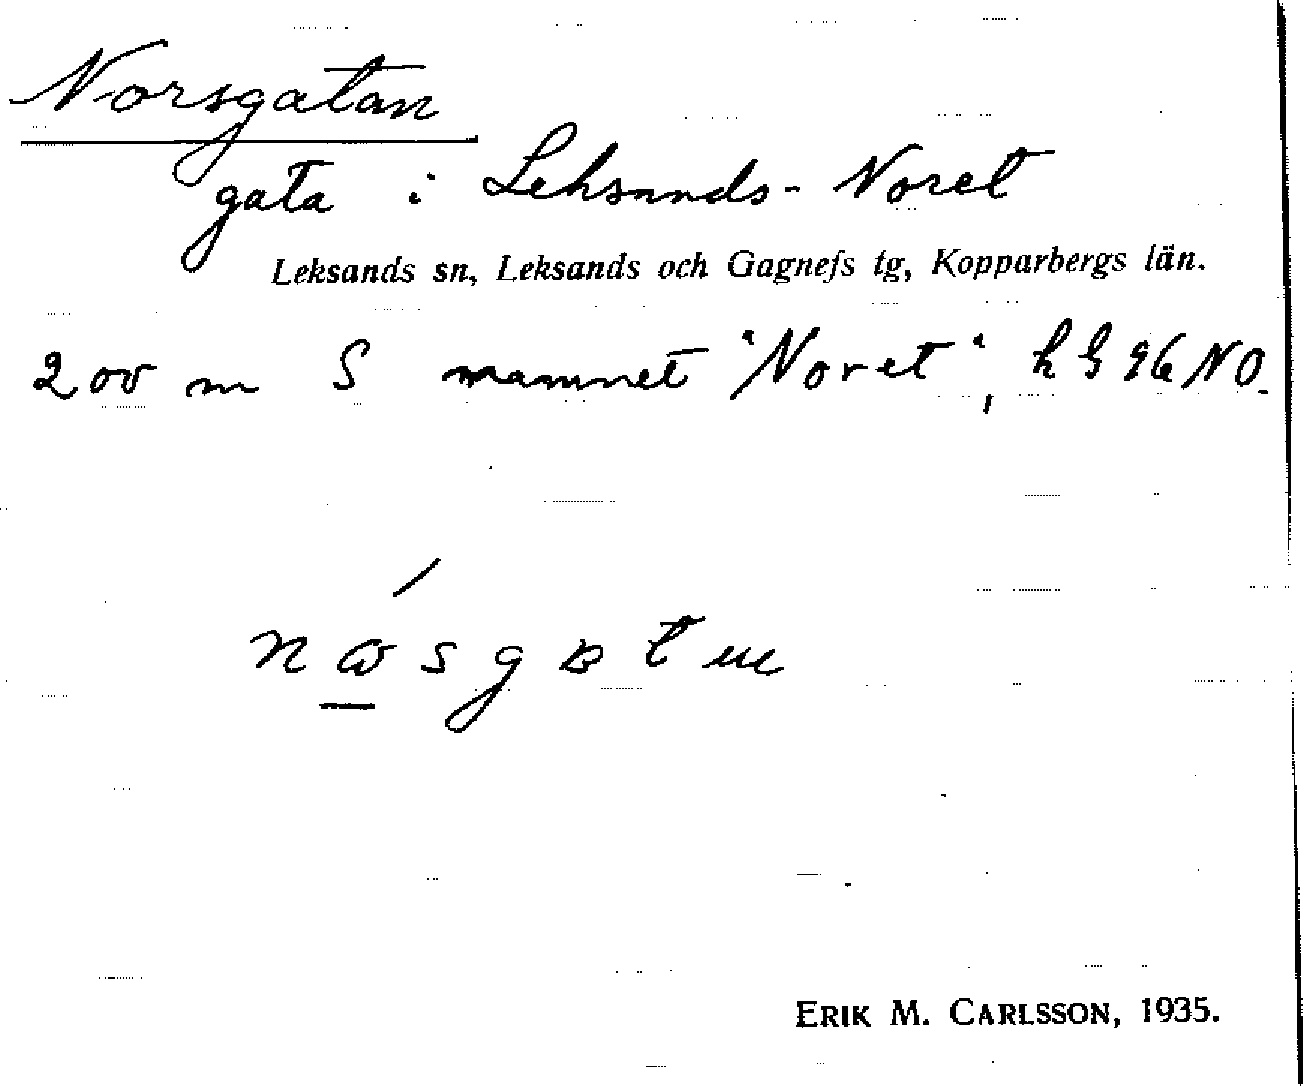 Norsgatan
gata i Leksands-Noret
Leksands sn, Leksands och Gagnefs tg, Kopparbergs län.
200 m S namnet "Noret", NO.
ERIK M. CARLSSON, 1935.